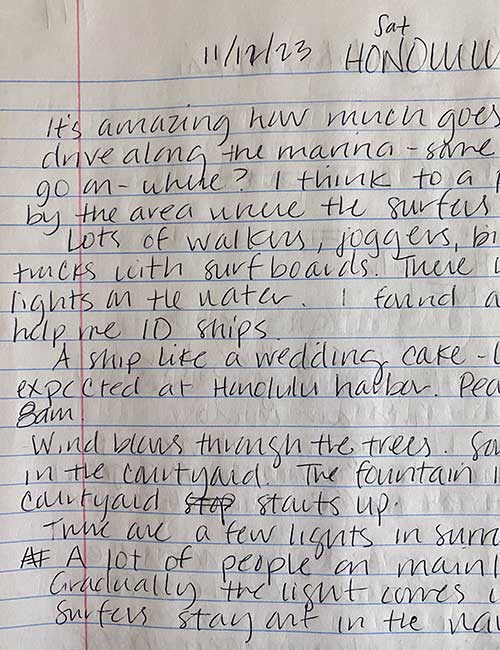 Sat
11/12/23 HONOLULU
It's amazing how much goes
drive along the marina - some
go on - where? I think to a
by the area where the surfers
Lots of walkers, joggers, bi
trucks with surfboards. There
lights on the water. I found a
help me ID ships.
A ship like a wedding cake -
expected at Honolulu harbor. Pea
8am
Wind blows through the trees. So
in the courtyard. The fountain i
courtyard stop starts up.
There are a few lights in surro
A lot of people on mainl
Gradually the light comes
Surfers stay out in the wa